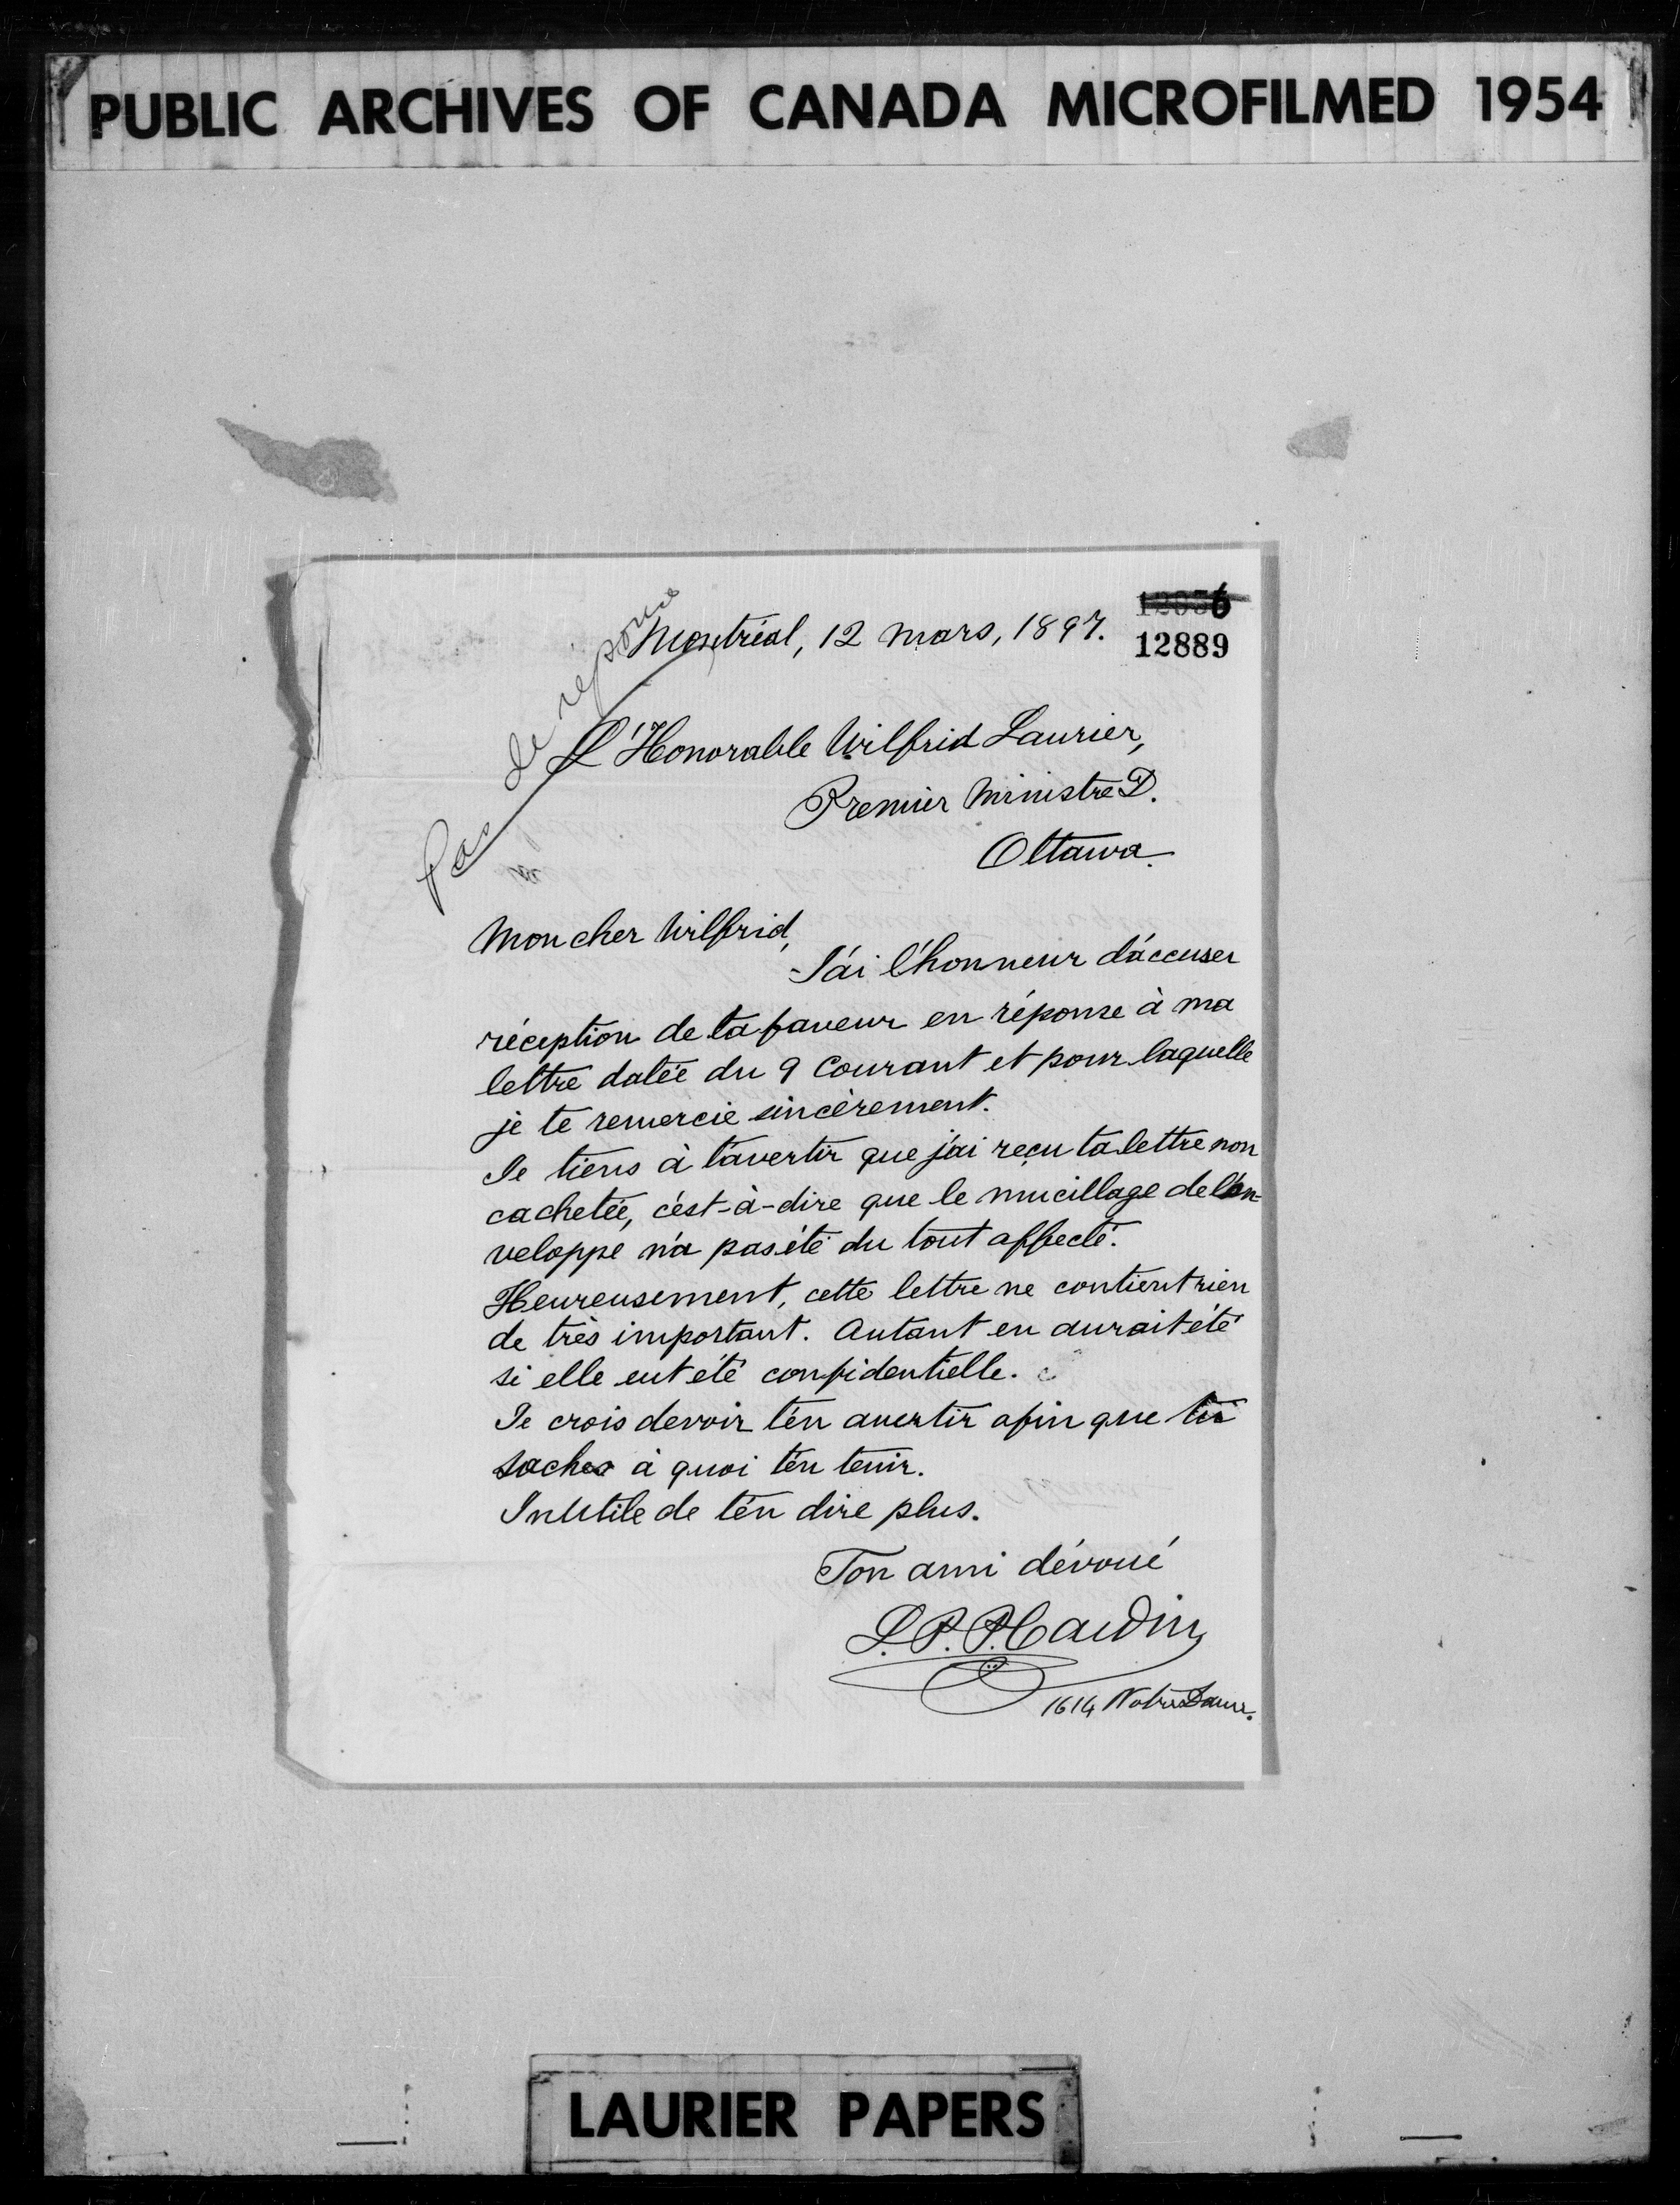 PUBLIC ARCHIVES OF CANADA MICROFILMED 1954
Pas de réponse
Montréal, 12 mars, 1897.
12889
L'Honorable Wilfrid Laurier,
Premier Ministre D.
Ottawa.
Mon cher Wilfrid,
J'ai l'honneur d'accuser
réception de ta faveur en réponse à ma
lettre datée du 9 Courant et pour laquelle
je te remercie sincèrement.
Je tiens à t'avertir que j'ai reçu ta lettre non
cachetée, c'est-à-dire que le mucillage de l'en-
veloppe n'a pas été du tout affecté.
Heureusement, cette lettre ne contient rien
de très important. Autant en aurait été
si elle eut été confidentielle.
Je crois devoir t'en avertir afin que tu
saches à quoi t'en tenir.
Inutile de t'en dire plus.
Ton ami dévoué
L. P. P. Cardin
1614 Notre Dame.
LAURIER PAPERS